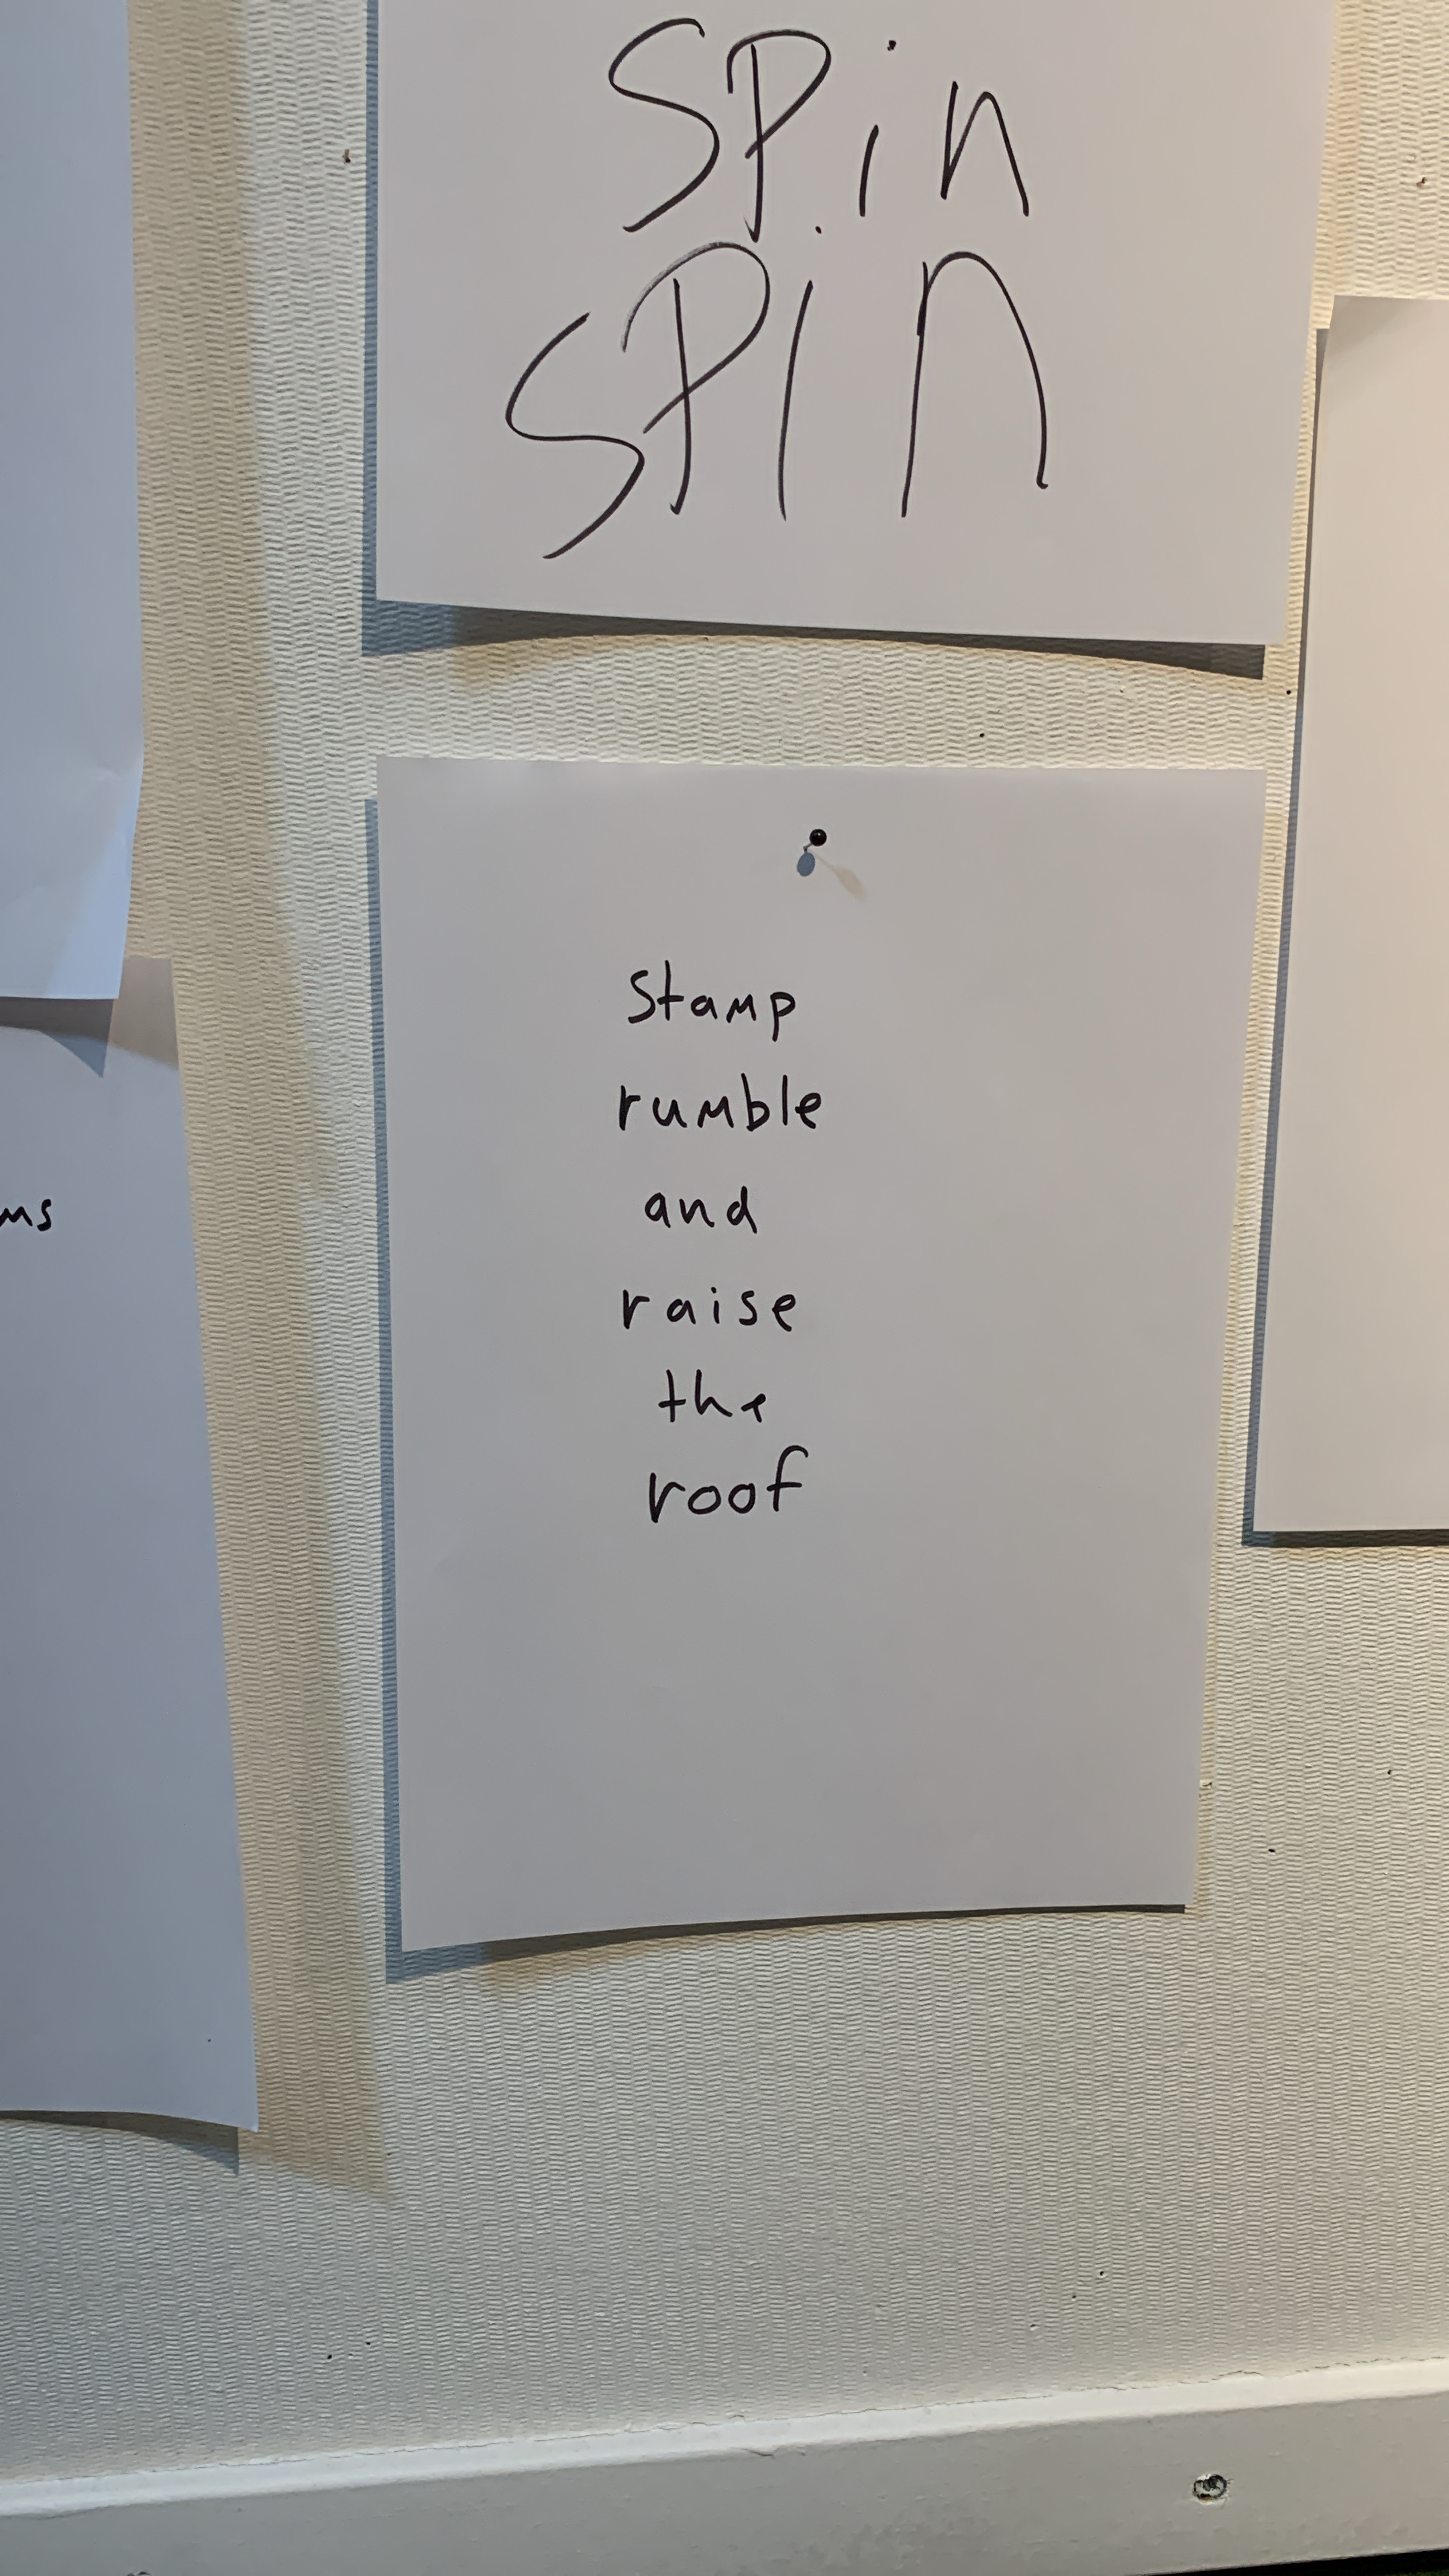 SPin
SPin
Stamp
rumble
and
raise
the
roof